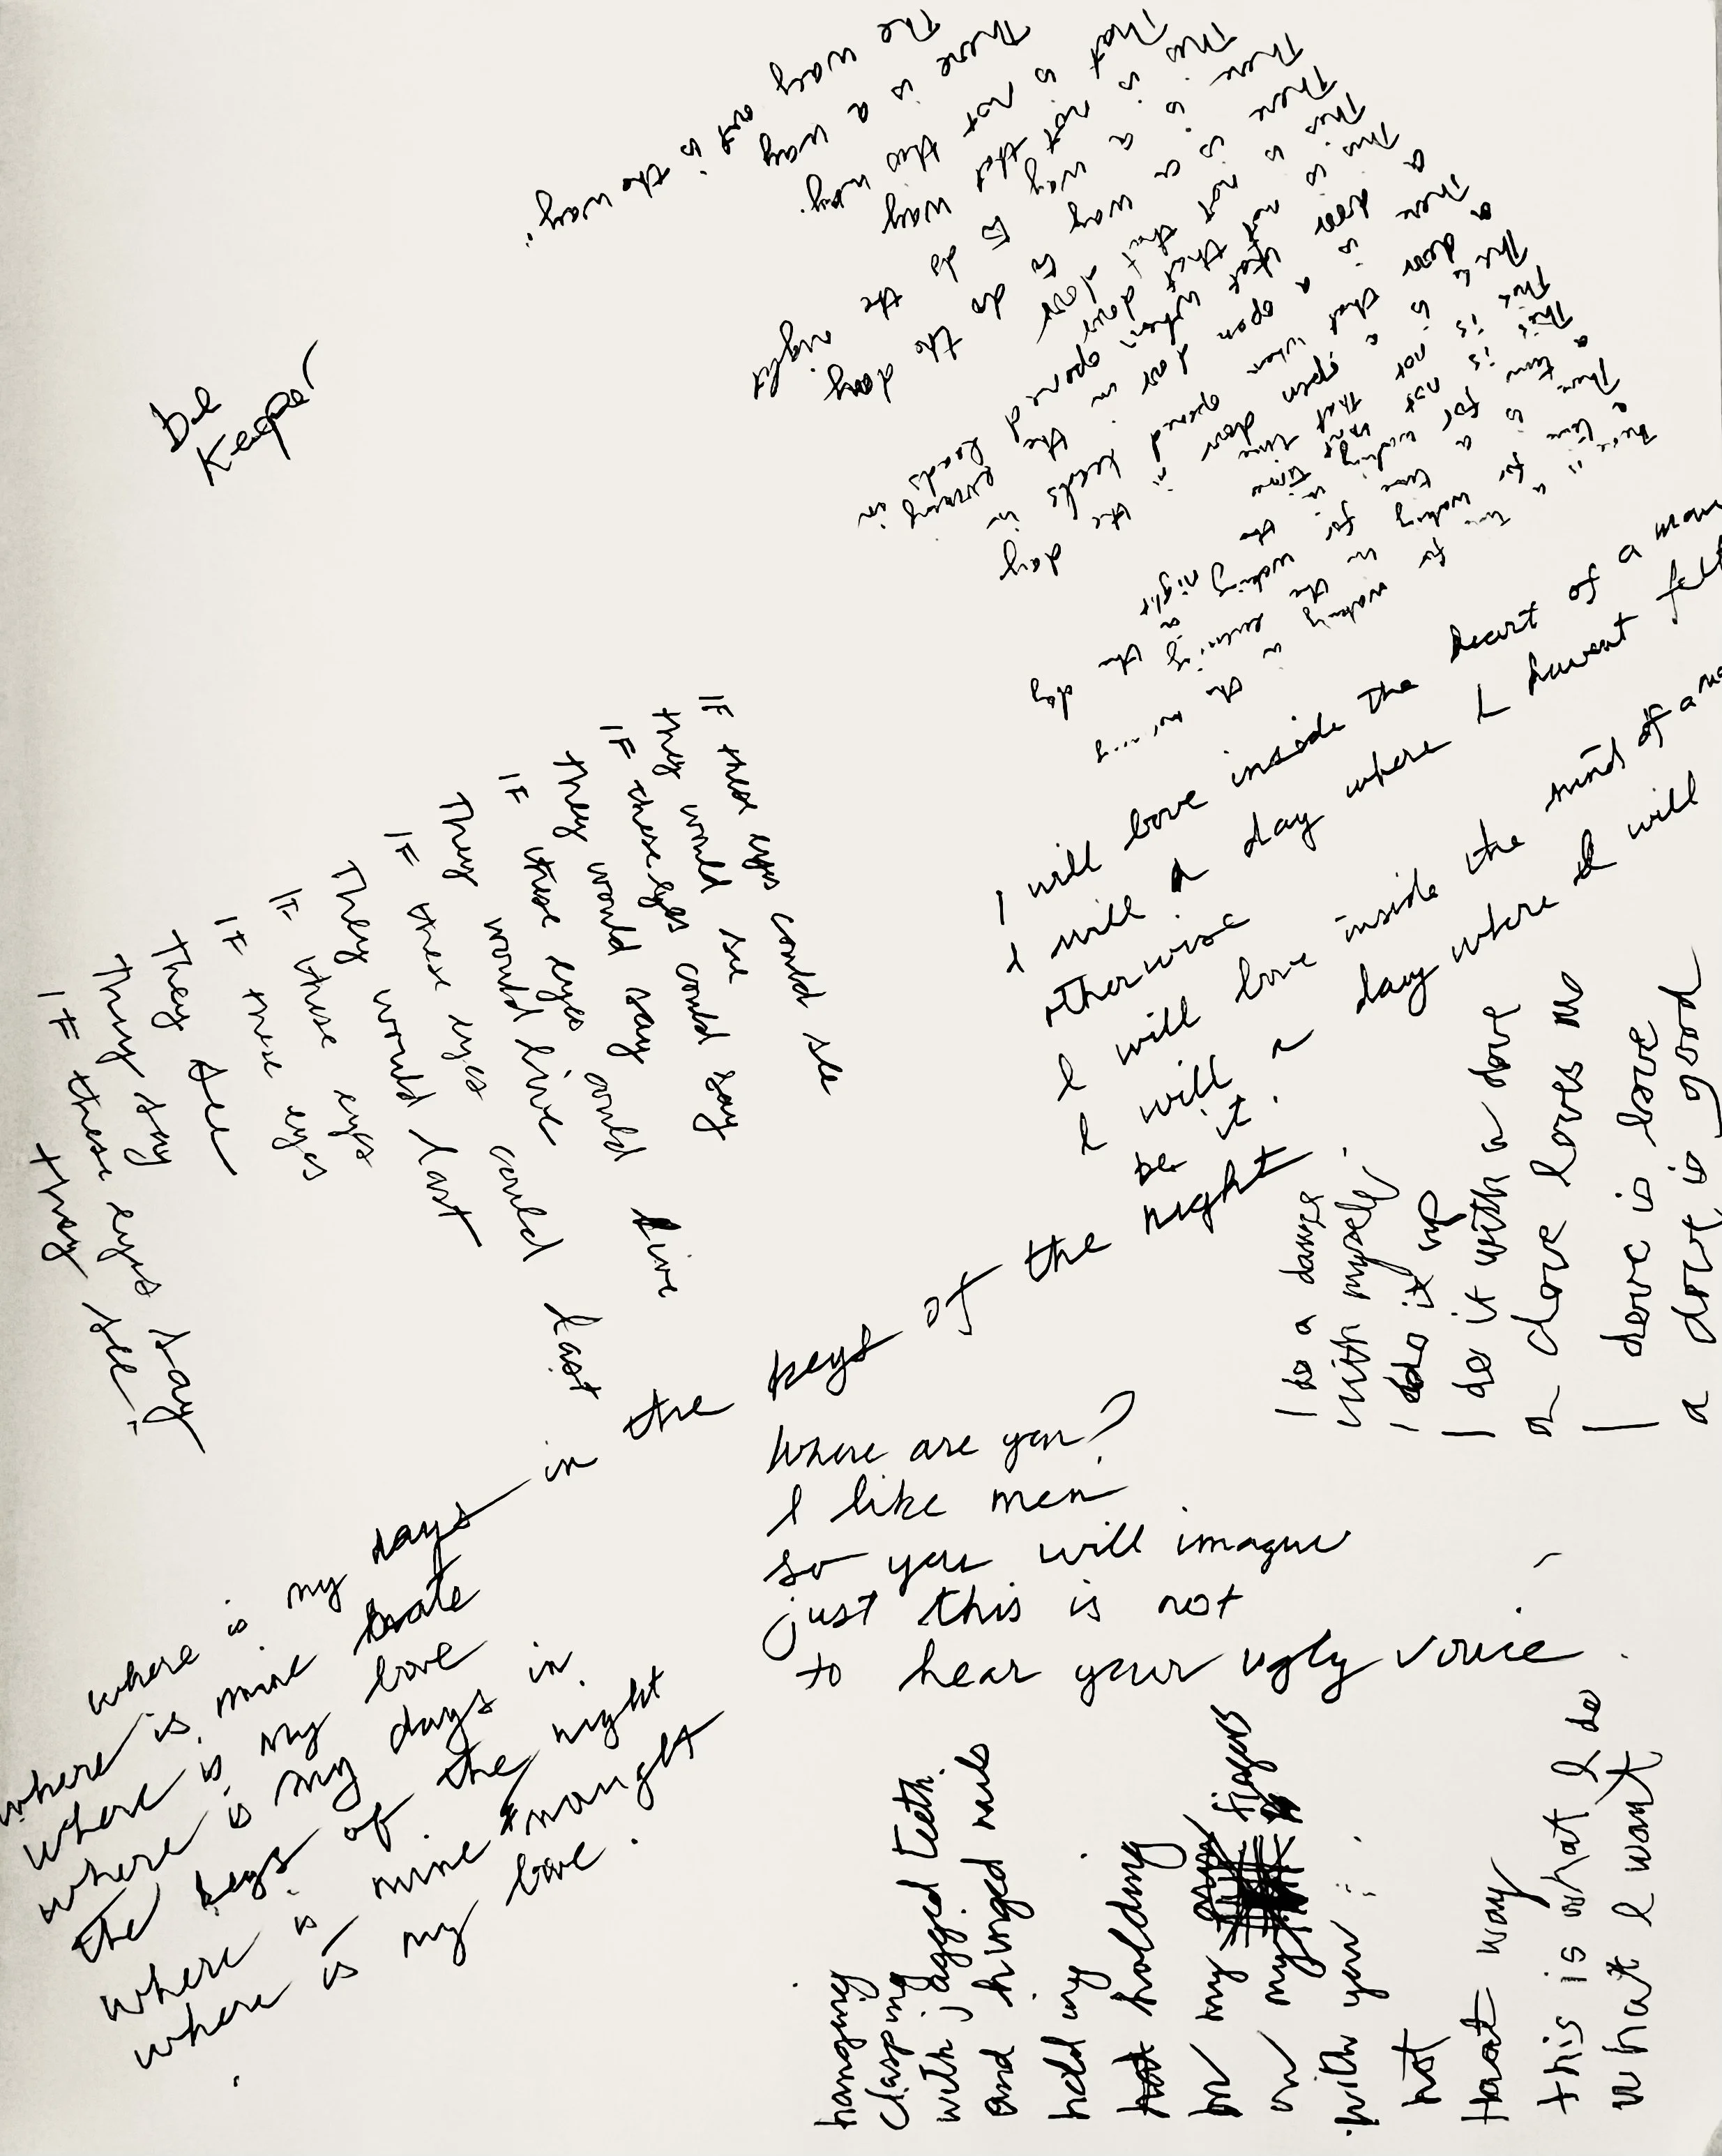 The way out is the way.
There is a way
That is not this way.
This is not that way
There is a way to do the night
There is a way to do the day
This is not that door
This is not that door
a door that when opened leads in
There is a open door in the evening
a door that when opened leads in
There is a open door in the day
This is not that time
This is not that time
a time for waking in the night
There is a time for waking in the day
a time for waking in the evening
Be
Keeper
IF these eyes could see
they would see
IF these eyes could say
they would say
IF these eyes could live
They would live
IF these eyes could last
They would last
IF these eyes
IF these eyes
They see
They say
IF these eyes say
they see
I will love inside the heart of a man
I will a day where I havent felt
otherwise
I will love inside the mind of a
I will a day where I will
be it.
where is my days in the keys of the night
where is mine
where is my love
where is my days in
the keys of the night
where is mine nought
where is my love.
Where are you?
I like men
so you will imague
just this is not
to hear your ugly voice.
I do a dance
with myself,
I do it up
I do it with a dove
a dove loves no
I dove is love
a dove is good
hanging
clasping
with jagged teeth.
and hinged nails
holding
not holding
on my fingers
on my
with you
not
that way
this is what I do
what I want